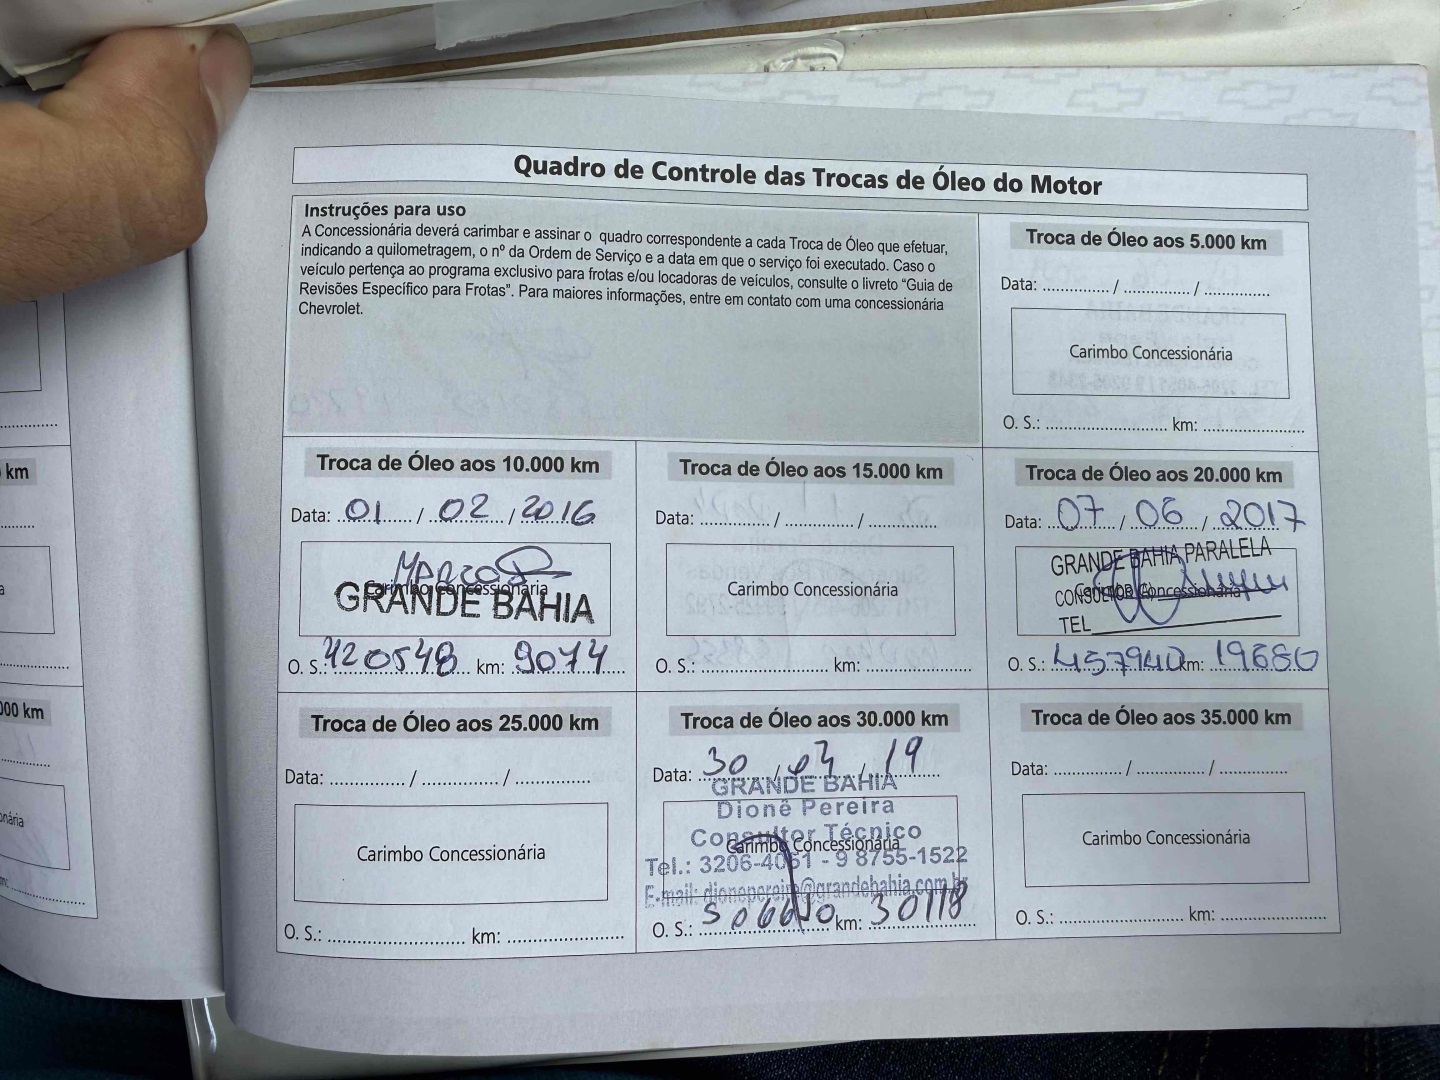 Quadro de Controle das Trocas de Óleo do Motor
Instruções para uso
A Concessionária deverá carimbar e assinar o quadro correspondente a cada Troca de Óleo que efetuar,
indicando a quilometragem, o nº da Ordem de Serviço e a data em que o serviço foi executado. Caso o
veículo pertença ao programa exclusivo para frotas e/ou locadoras de veículos, consulte o livreto "Guia de
Revisões Específico para Frotas". Para maiores informações, entre em contato com uma concessionária
Chevrolet.
Troca de Óleo aos 5.000 km
Data: ............... / ............... / ...............
Carimbo Concessionária
O. S.: ............................ km: .......................
km
Troca de Óleo aos 10.000 km
Data: 01 / 02 / 2016
Carimbo Concessionária
GRANDE BAHIA
O. S.: 420548 km: 9074
Troca de Óleo aos 15.000 km
Data: ............... / ............... / ...............
Carimbo Concessionária
O. S.: ............................ km: .......................
Troca de Óleo aos 20.000 km
Data: 07 / 06 / 2017
GRANDE BAHIA PARALELA
CONSULTOR
Carimbo Concessionária
TEL
O. S.: 457940 km: 19680
000 km
Troca de Óleo aos 25.000 km
Data: ............... / ............... / ...............
Carimbo Concessionária
O. S.: ............................ km: .......................
Troca de Óleo aos 30.000 km
Data: 30 / 03 / 19
GRANDE BAHIA
Dionê Pereira
Consultor Técnico
Carimbo Concessionária
Tel.: 3206-4061 - 9 8755-1522
E-mail: dionepereira@grandebahia.com.br
O. S.: km: 30118
Troca de Óleo aos 35.000 km
Data: ............... / ............... / ...............
Carimbo Concessionária
O. S.: ............................ km: .......................